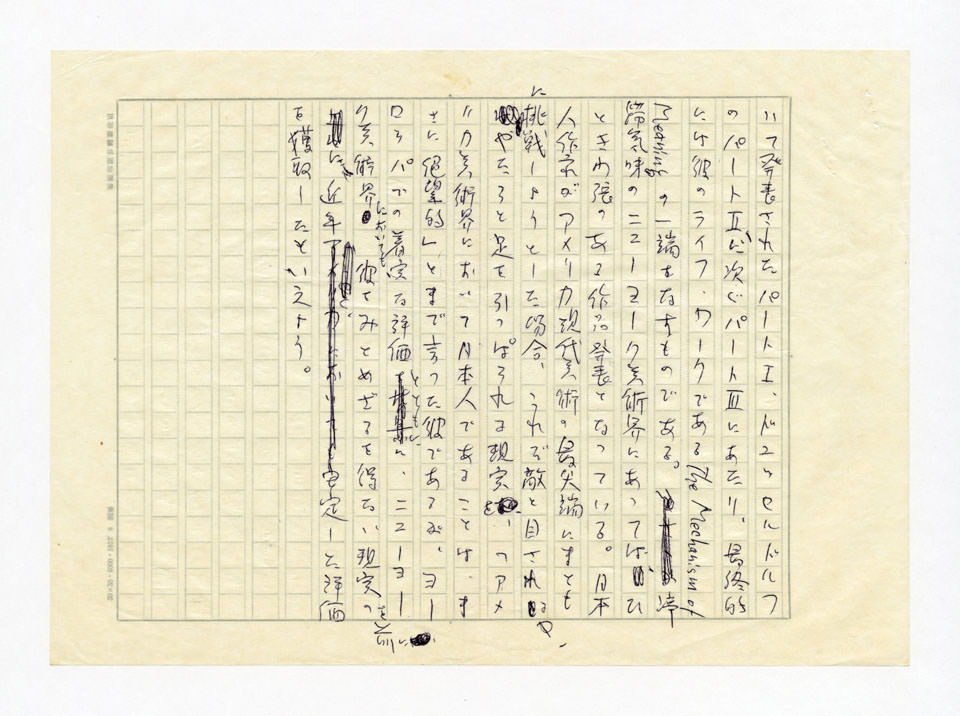 いて発表されたパートⅠ、ドュッセルドルフ
のパートⅡに次ぐパートⅢにあたり、最終的
には彼のライフ・ワークであるThe Mechanism of
Meaningの一端をなすものである。沸
滞気味のニューヨーク美術界にあっては、ひ
ときわ張のある作品発表となっている。日本
人作家がアメリカ現代美術の最先端にまとも
に挑戦しようとした場合、うれぞ敵と目されゝや
やたらと足を引っぱられる現実、「アメ
リカ美術界において日本人であることは、ま
さに絶望的」とまで言った彼であるが、ヨー
ロッパでの着実な評価とともに、ニューヨー
ク美術界においても彼をみとめざるを得ない現実を前に
近年安定した評価
を獲取したといえよう。